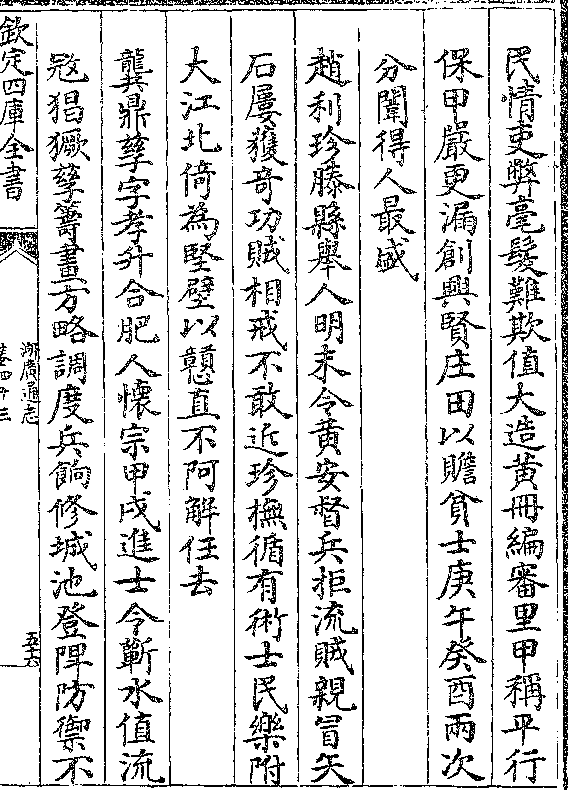 民情吏弊毫髮難欺值大造黄冊編審里甲稱平行
保甲嚴更漏創興賢庄田以贍貧士庚午癸酉兩次
分闈得人最盛
趙利珍滕縣舉人明末令黄安督兵拒流賊親冒矢
石屢獲竒功賊相戒不敢近珍撫循有術士民樂附
大江北倚為堅壁以戅直不阿解任去
龔鼎孳字孝升合肥人懷宗甲戌進士令蘄水值流
㓂猖獗孳籌畫方略調度兵餉修城池登陴防禦不
欽定四庫全書
湖廣通志
卷四十三
五十六